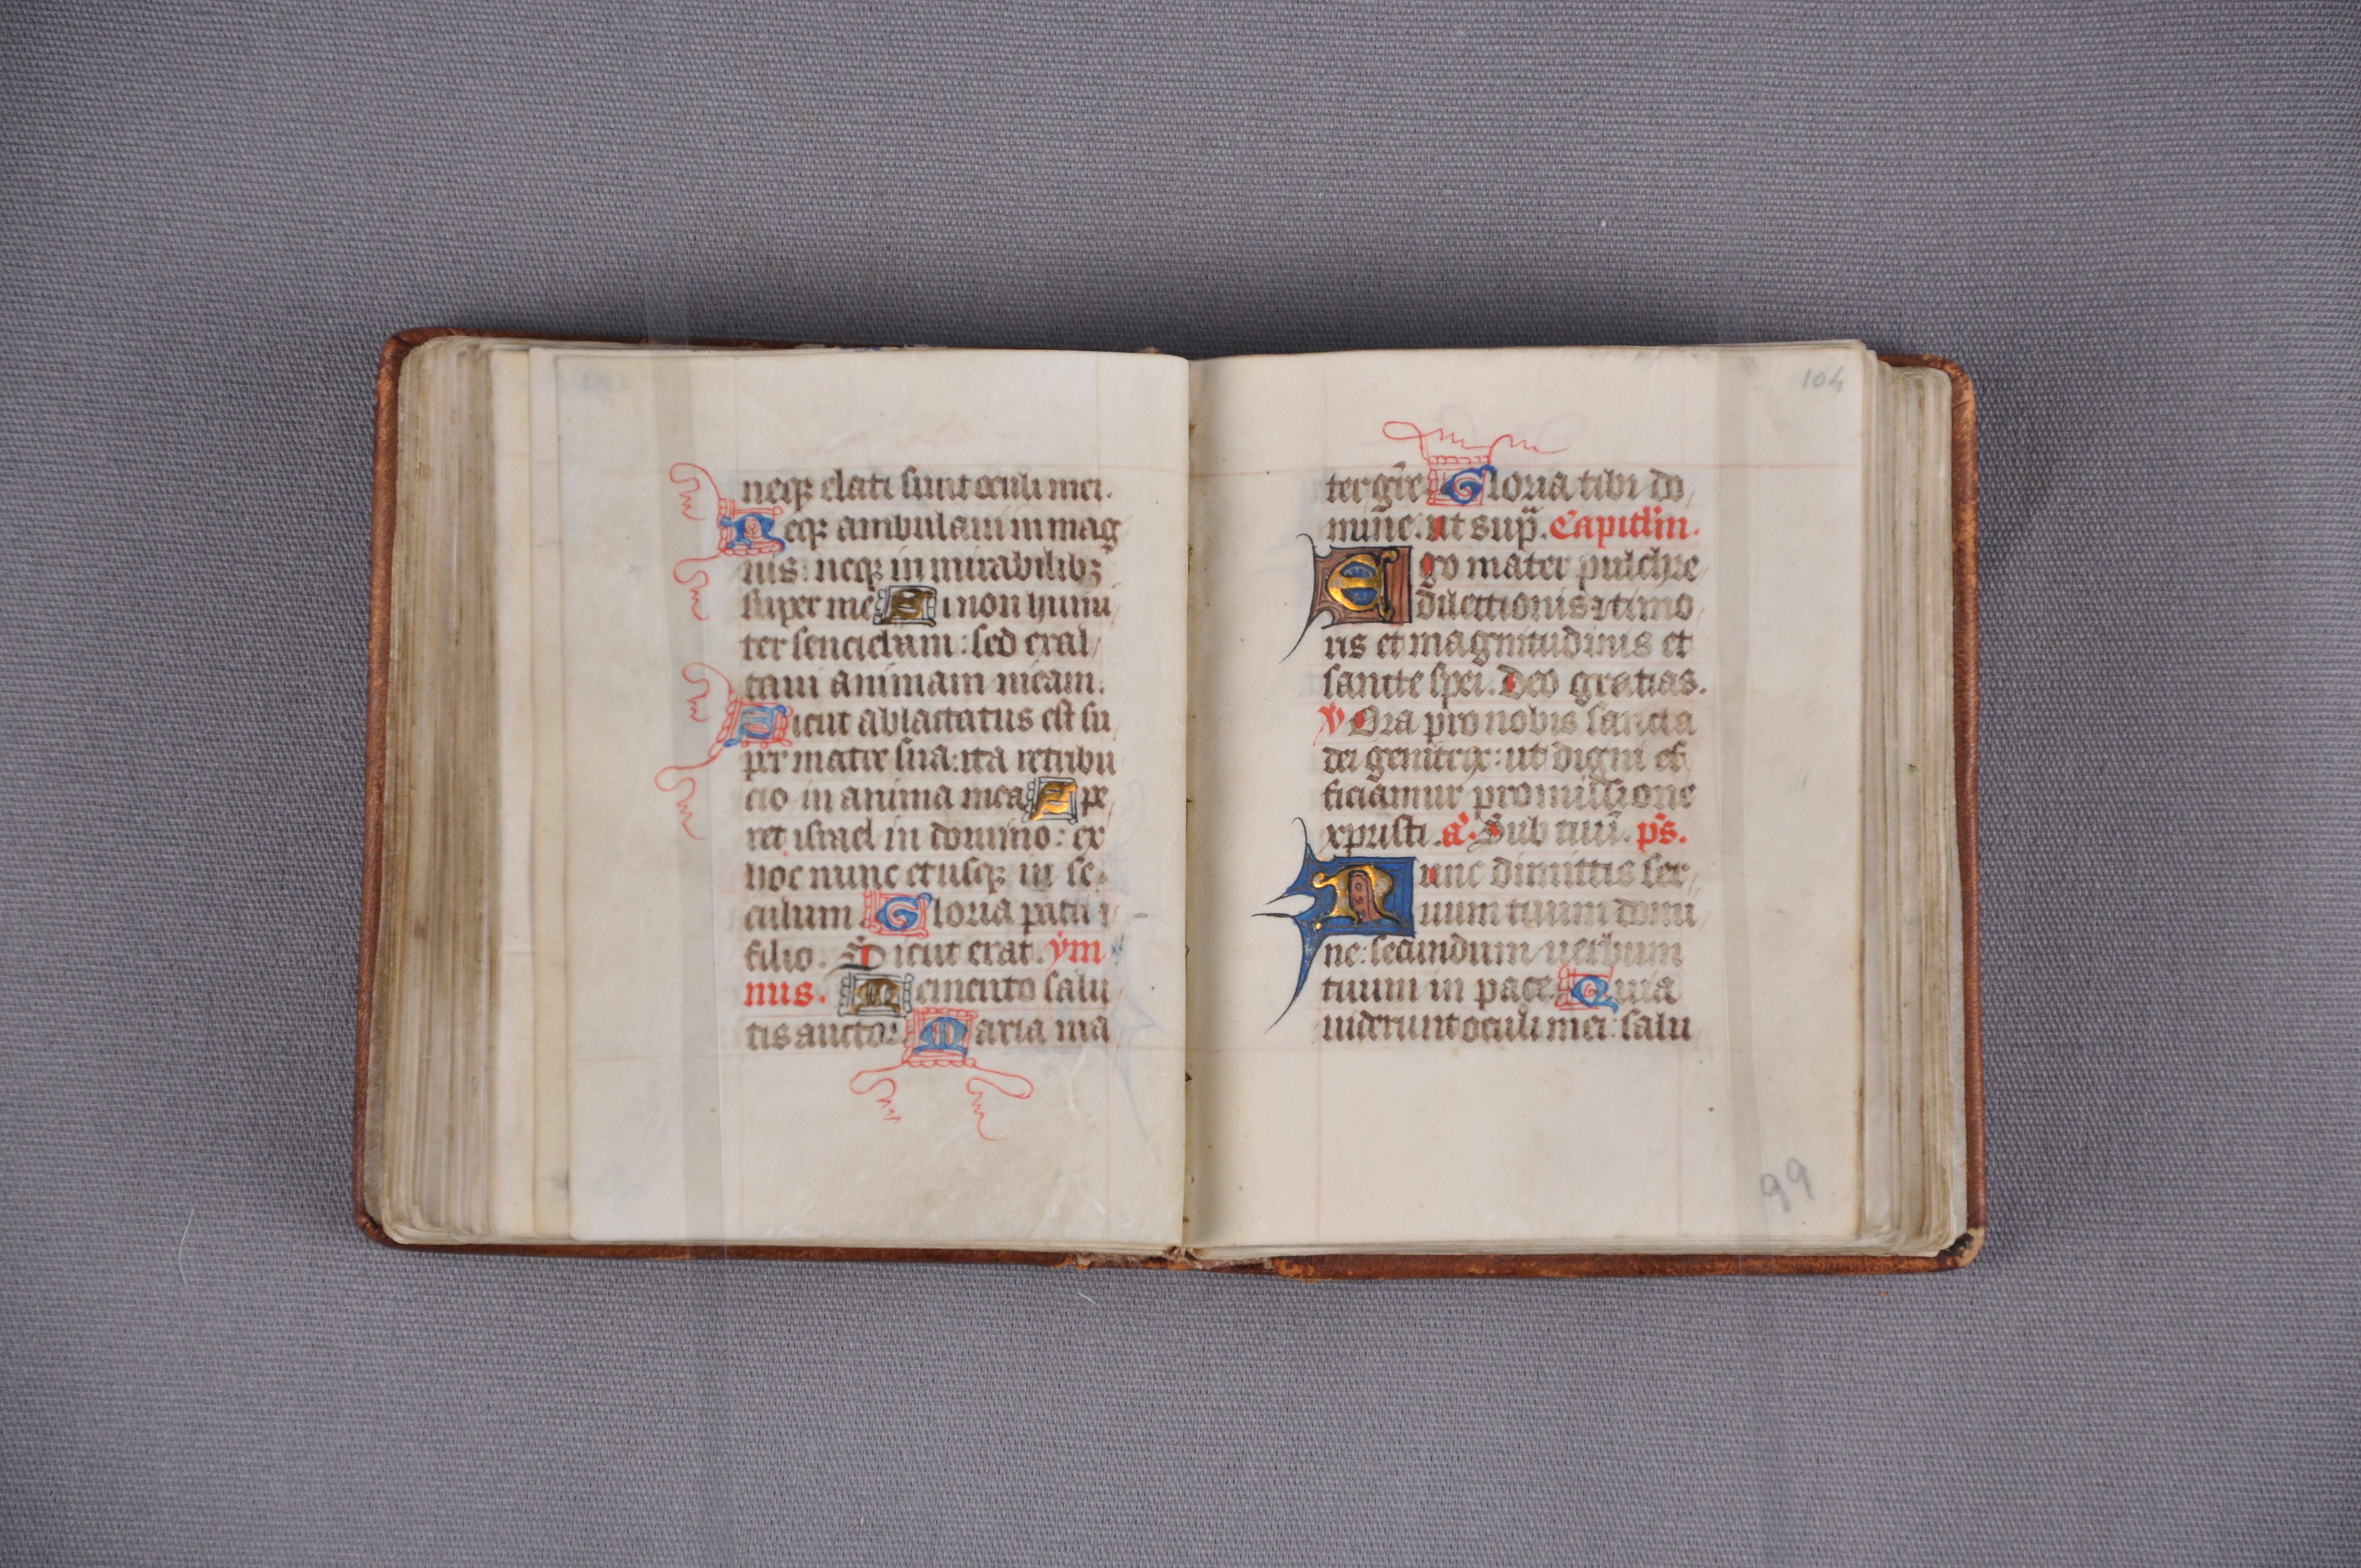 neqꝫ elati sunt oculi mei.
Neqꝫ ambulaui in mag
nis: neqꝫ in mirabilibꝫ
super me Si non humi
ter senciebam: sed exal
taui animam meam.
Sicut ablactatus est su
per matre sua: ita retribu
cio in anima mea Spe
ret israel in domino: ex
hoc nunc et usqꝫ in se
culum Gloria patri ⁊
filio. Sicut erat. ym
nus. Memento salu
tis auctor Maria ma
104
ter gr̃e Gloria tibi do
mine. ut sup̃. Capitl'm.
Ego mater pulchre
dilectionis ⁊ timo
ris et magnitudinis et
sancte spei. Deo gratias.
V Ora pro nobis sancta
dei genitrix: ut digni ef
ficiamur promissione
xpristi. a. Sub tuũ. ps.
Nunc dimittis ser
uum tuum domi
ne: secundum uerbum
tuum in pace Quia
uiderunt oculi mei: salu
99